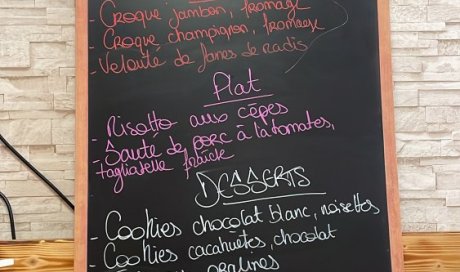 - Croque jambon, fromage
- Croque champignon, fromage
- Velouté de fanes de radis
Plat
- Risotto aux cèpes
- Sauté de porc à la tomates,
tagliatelle fraîche
DESSERTS
- Cookies chocolat blanc, noisettes
- Cookies cacahuètes, chocolat
pralines